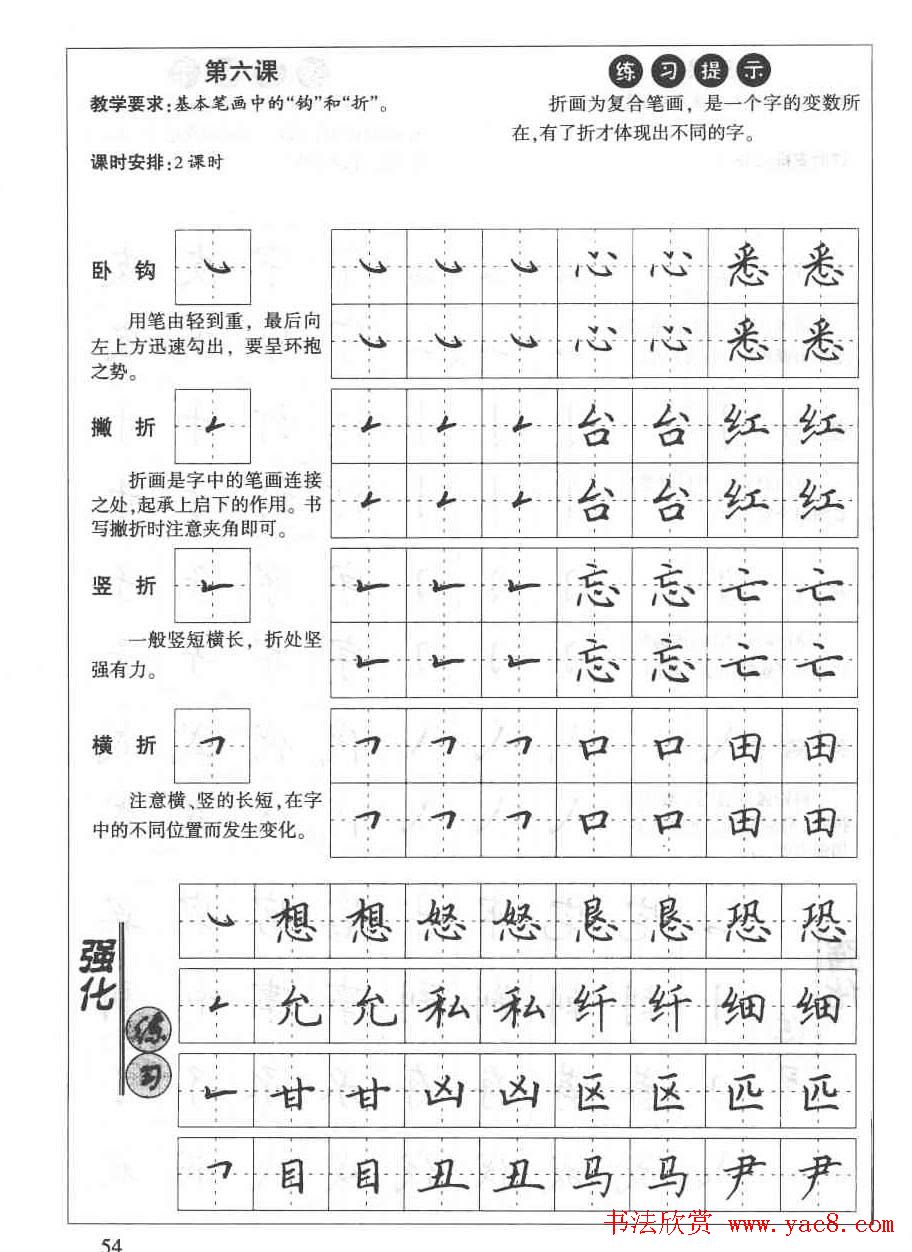 第六课
教学要求:基本笔画中的“钩”和“折”。
课时安排:2 课时
练习提示
折画为复合笔画，是一个字的变数所
在,有了折才体现出不同的字。
卧 钩
㇃ ㇃ ㇃ ㇃ 心 心 悉 悉
用笔由轻到重，最后向
左上方迅速勾出，要呈环抱
之势。
㇃ ㇃ ㇃ 心 心 悉 悉
撇 折
𠃋 𠃋 𠃋 𠃋 台 台 红 红
折画是字中的笔画连接
之处,起承上启下的作用。书
写撇折时注意夹角即可。
𠃋 𠃋 𠃋 台 台 红 红
竖 折
𠃊 𠃊 𠃊 𠃊 忘 忘 亡 亡
一般竖短横长，折处坚
强有力。
𠃊 𠃊 𠃊 忘 忘 亡 亡
横 折
𠃍 𠃍 𠃍 𠃍 口 口 田 田
注意横、竖的长短,在字
中的不同位置而发生变化。
𠃍 𠃍 𠃍 口 口 田 田
强化
练习
㇃ 想 想 怒 怒 恳 恳 恐 恐
𠃋 允 允 私 私 纤 纤 细 细
𠃊 甘 甘 凶 凶 区 区 匹 匹
𠃍 目 目 丑 丑 马 马 尹 尹
书法欣赏 www.yac8.com
54